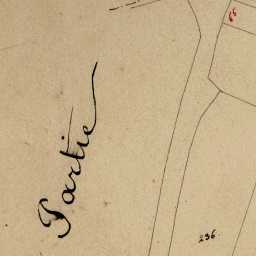 Partie
236